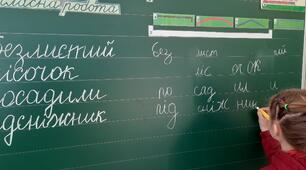 ласна робота
безлистий без лист ий
ісочок ліс оч ок
осадили по сад ил и
дсніжник під сніж ник